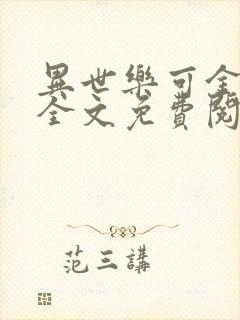 異世樂可全
全文免費閱
范三講